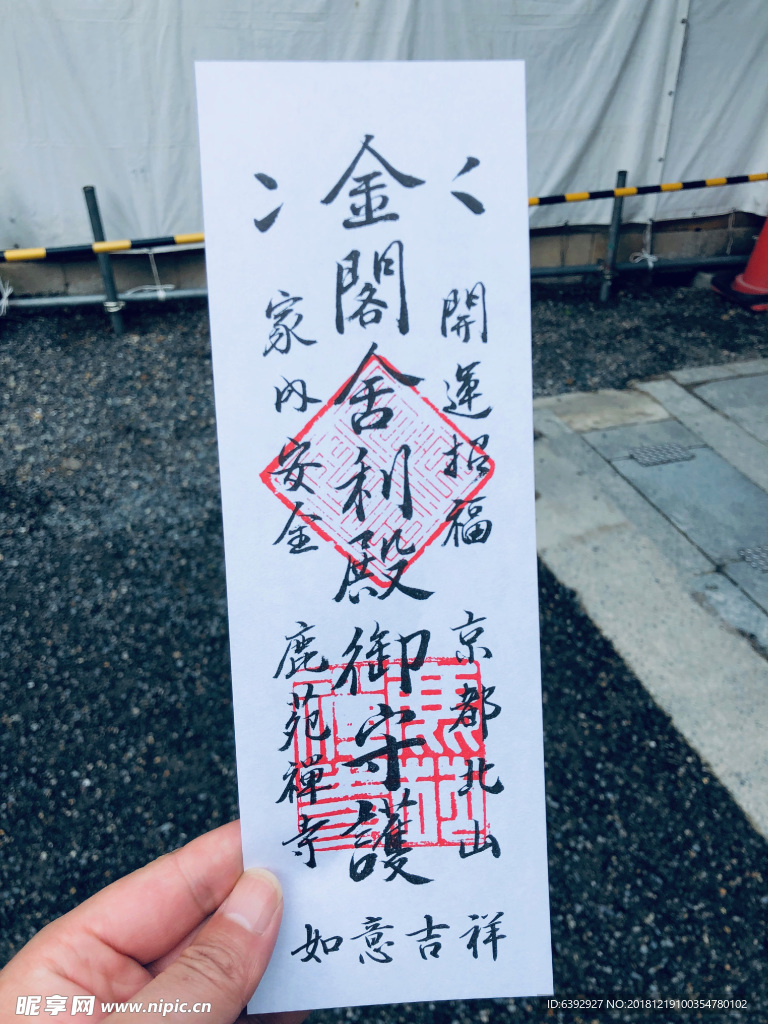 開運招福 京都北山
金閣舎利殿御守護
家内安全 鹿苑禅寺
如意吉祥
昵享网 www.nipic.cn
ID:6392927 NO:20181219100354780102